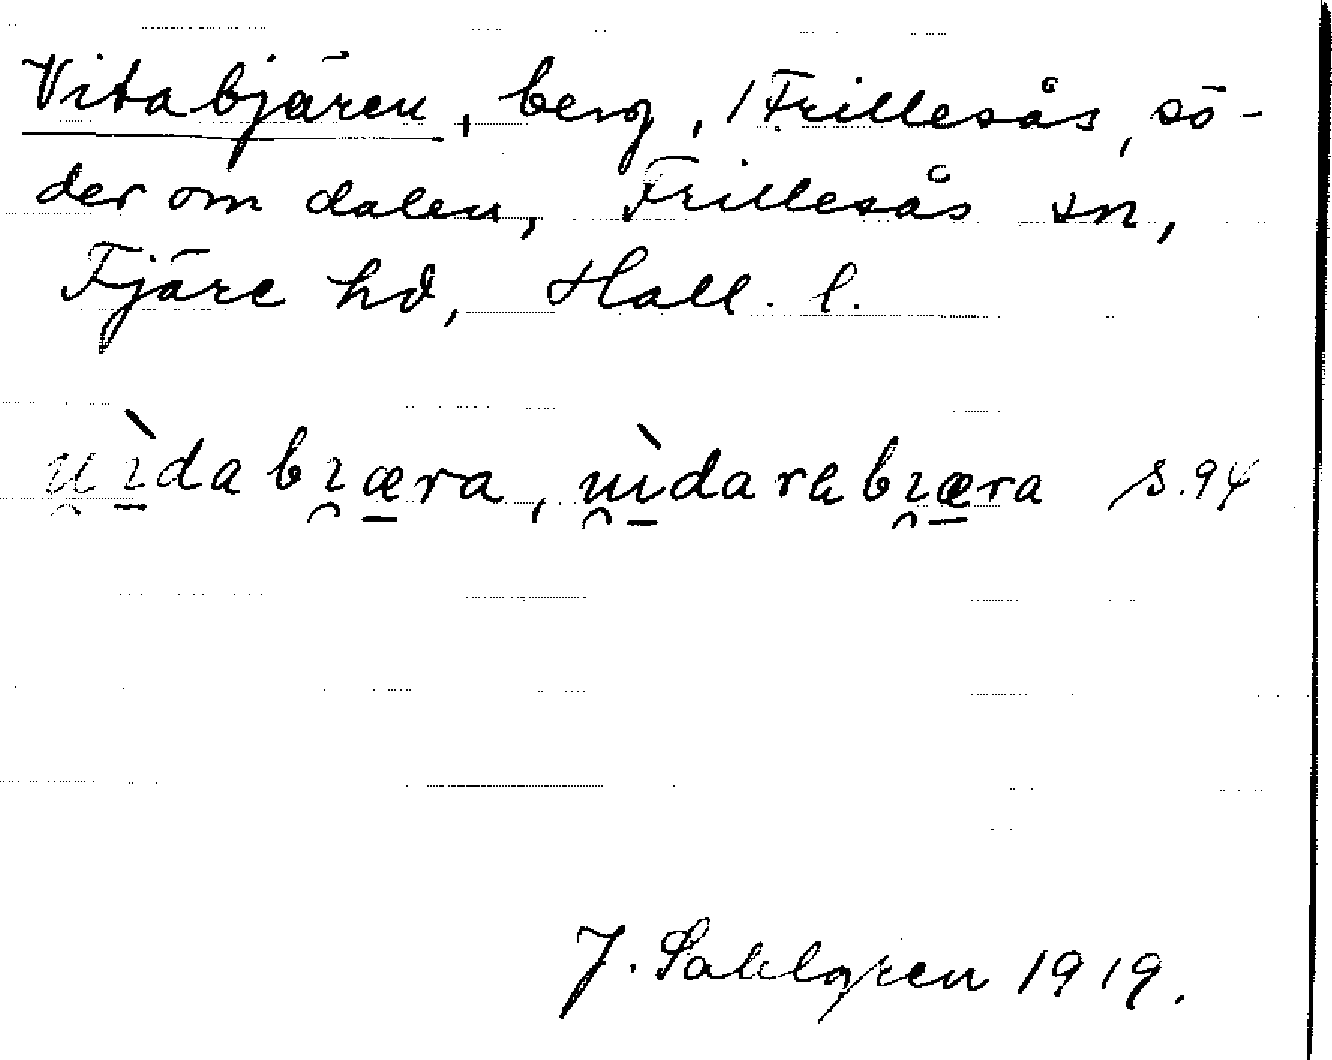 Vitabjären, berg, 1 Frillesås, sö-
der om dalen, Frillesås sn,
Fjäre hd, Hall. l.
u̯ìdabɿ̯æra, u̯ìdarabɿ̯æra s.94
J. Sahlgren 1919.